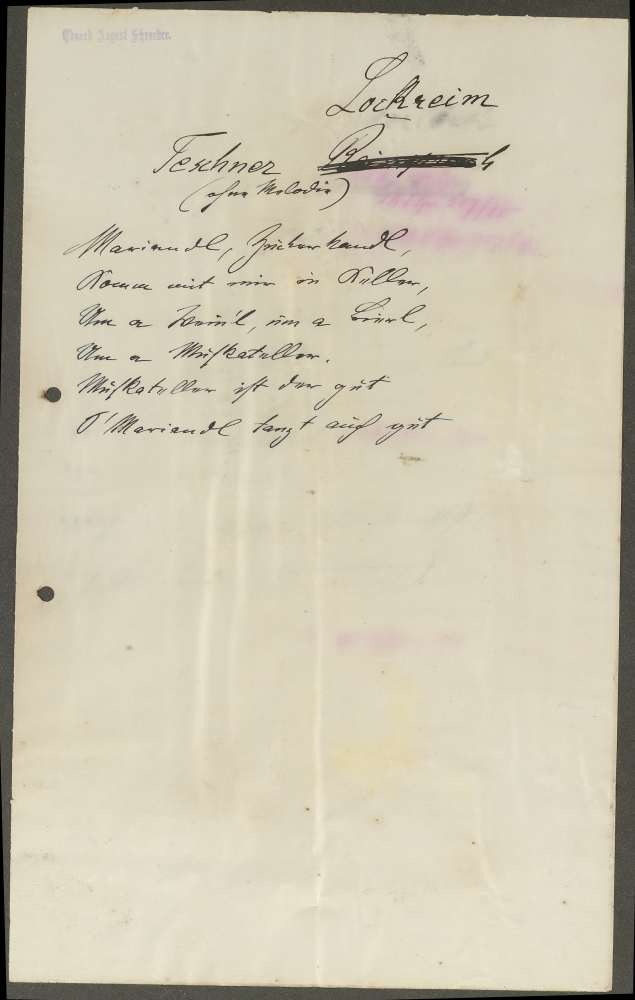 Eduard August Schroeder.
Lockreim
Teschner
(ohne Melodie)
Mariandl, Zuckerkandl,
Komm mit mir in Keller,
Um a Wein'l, um a Bierl,
Um a Muskateller.
Muskateller ist der gut
D'Mariandl tanzt auch gut